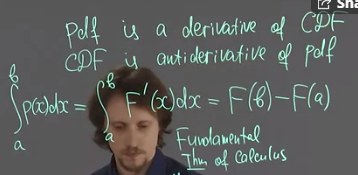 Sha
Pdf is a derivative of CDF
CDF is antiderivative of pdf
∫ₐᵇ p(x)dx = ∫ₐᵇ F'(x)dx = F(b)-F(a)
Fundamental
Thm of calculus